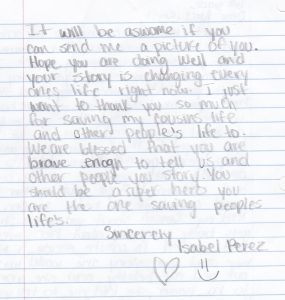 It will be aswome if you
can send me a picture of you.
Hope you are doing well and
your story is changing every
ones life right now. I just
want to thank you so much
for saving my cousins life
and other people's life to.
We are blessed that you are
brave enogh to tell us and
other people you story. You
should be a super hero you
are the one saving peoples
life's.
Sincerely
Isabel Perez